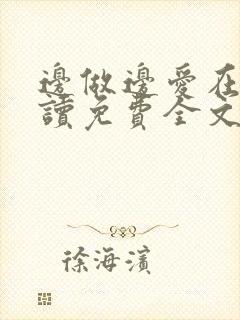 邊做邊愛在
讀免費全文
徐海濱